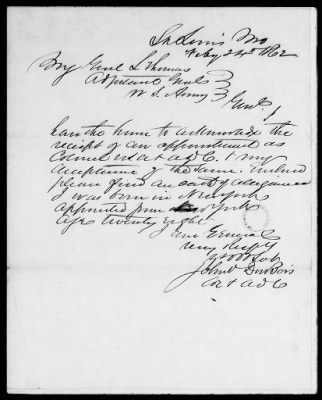 St Louis Mo
Feby 24th 1862
Brig Genl L Thomas
Adjutant Genl
U S Army
Genl!
I have the honor to acknowledge the
receipt of an appointment as
Colonel and a d C. & my
acceptance of the same. Enclosed
please find an oath of allegiance
I was born in New York
appointed from New York
age twenty eight
I am General
Very Respfy
Yr Obt Svt
John V DuBois
Col & a d C